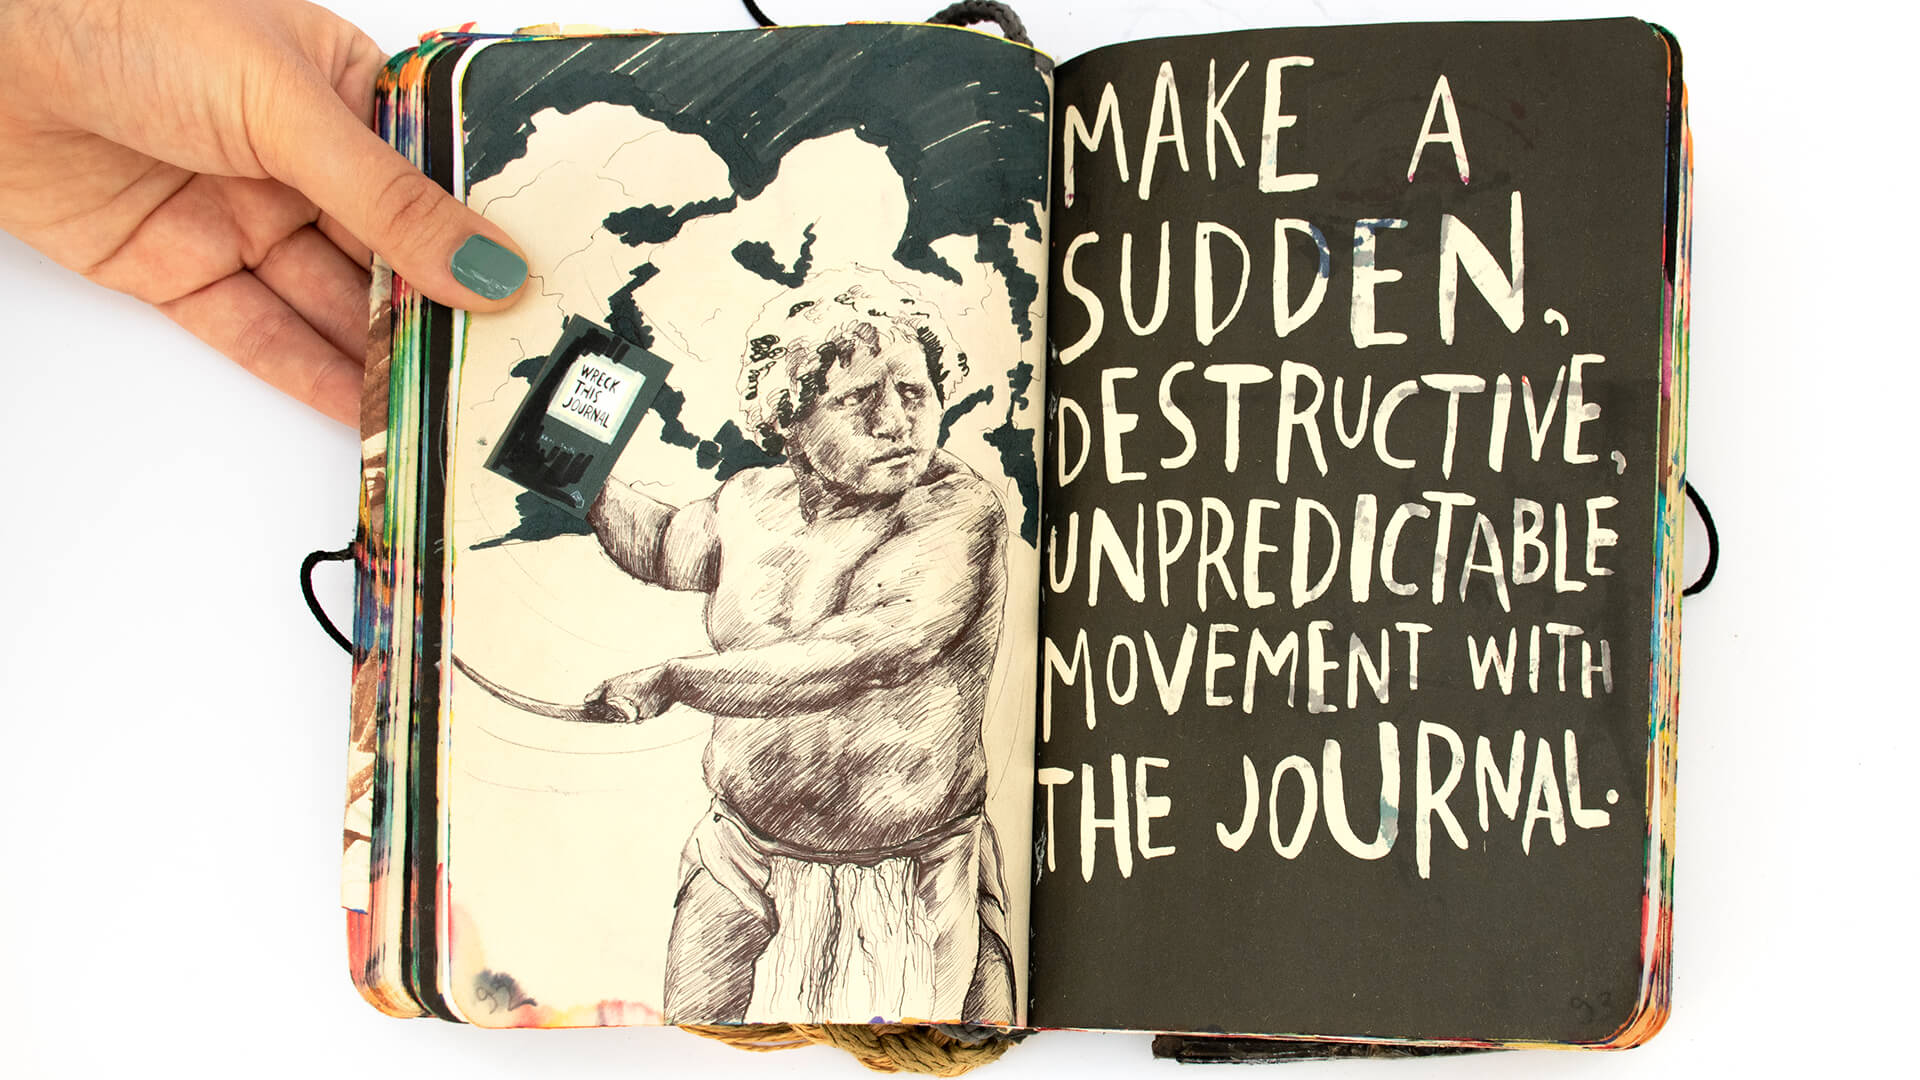 WRECK
THIS
JOURNAL
KERI SMITH
92
MAKE A
SUDDEN,
DESTRUCTIVE,
UNPREDICTABLE
MOVEMENT WITH
THE JOURNAL.
93